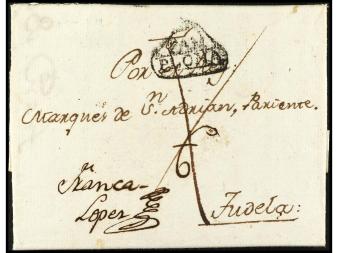 PAM
PLONA
Por
Marques de Sn. Adrian, Pariente.
Franca-
Lopez
Tudela: